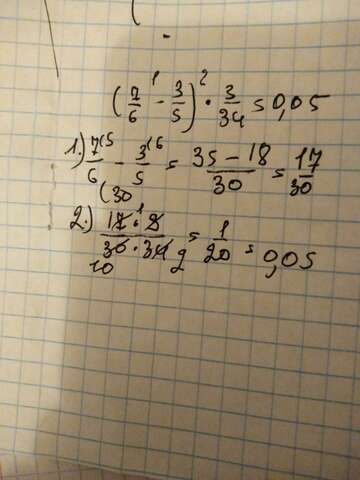 (7/6 ¹- 3/5) ²· 3/34 = 0,05
1.) 7(5/6 - 3(6/5 = 35-18/30 = 17/30
(30
2.) 17·3/30·34 = 1/20 = 0,05
10 2